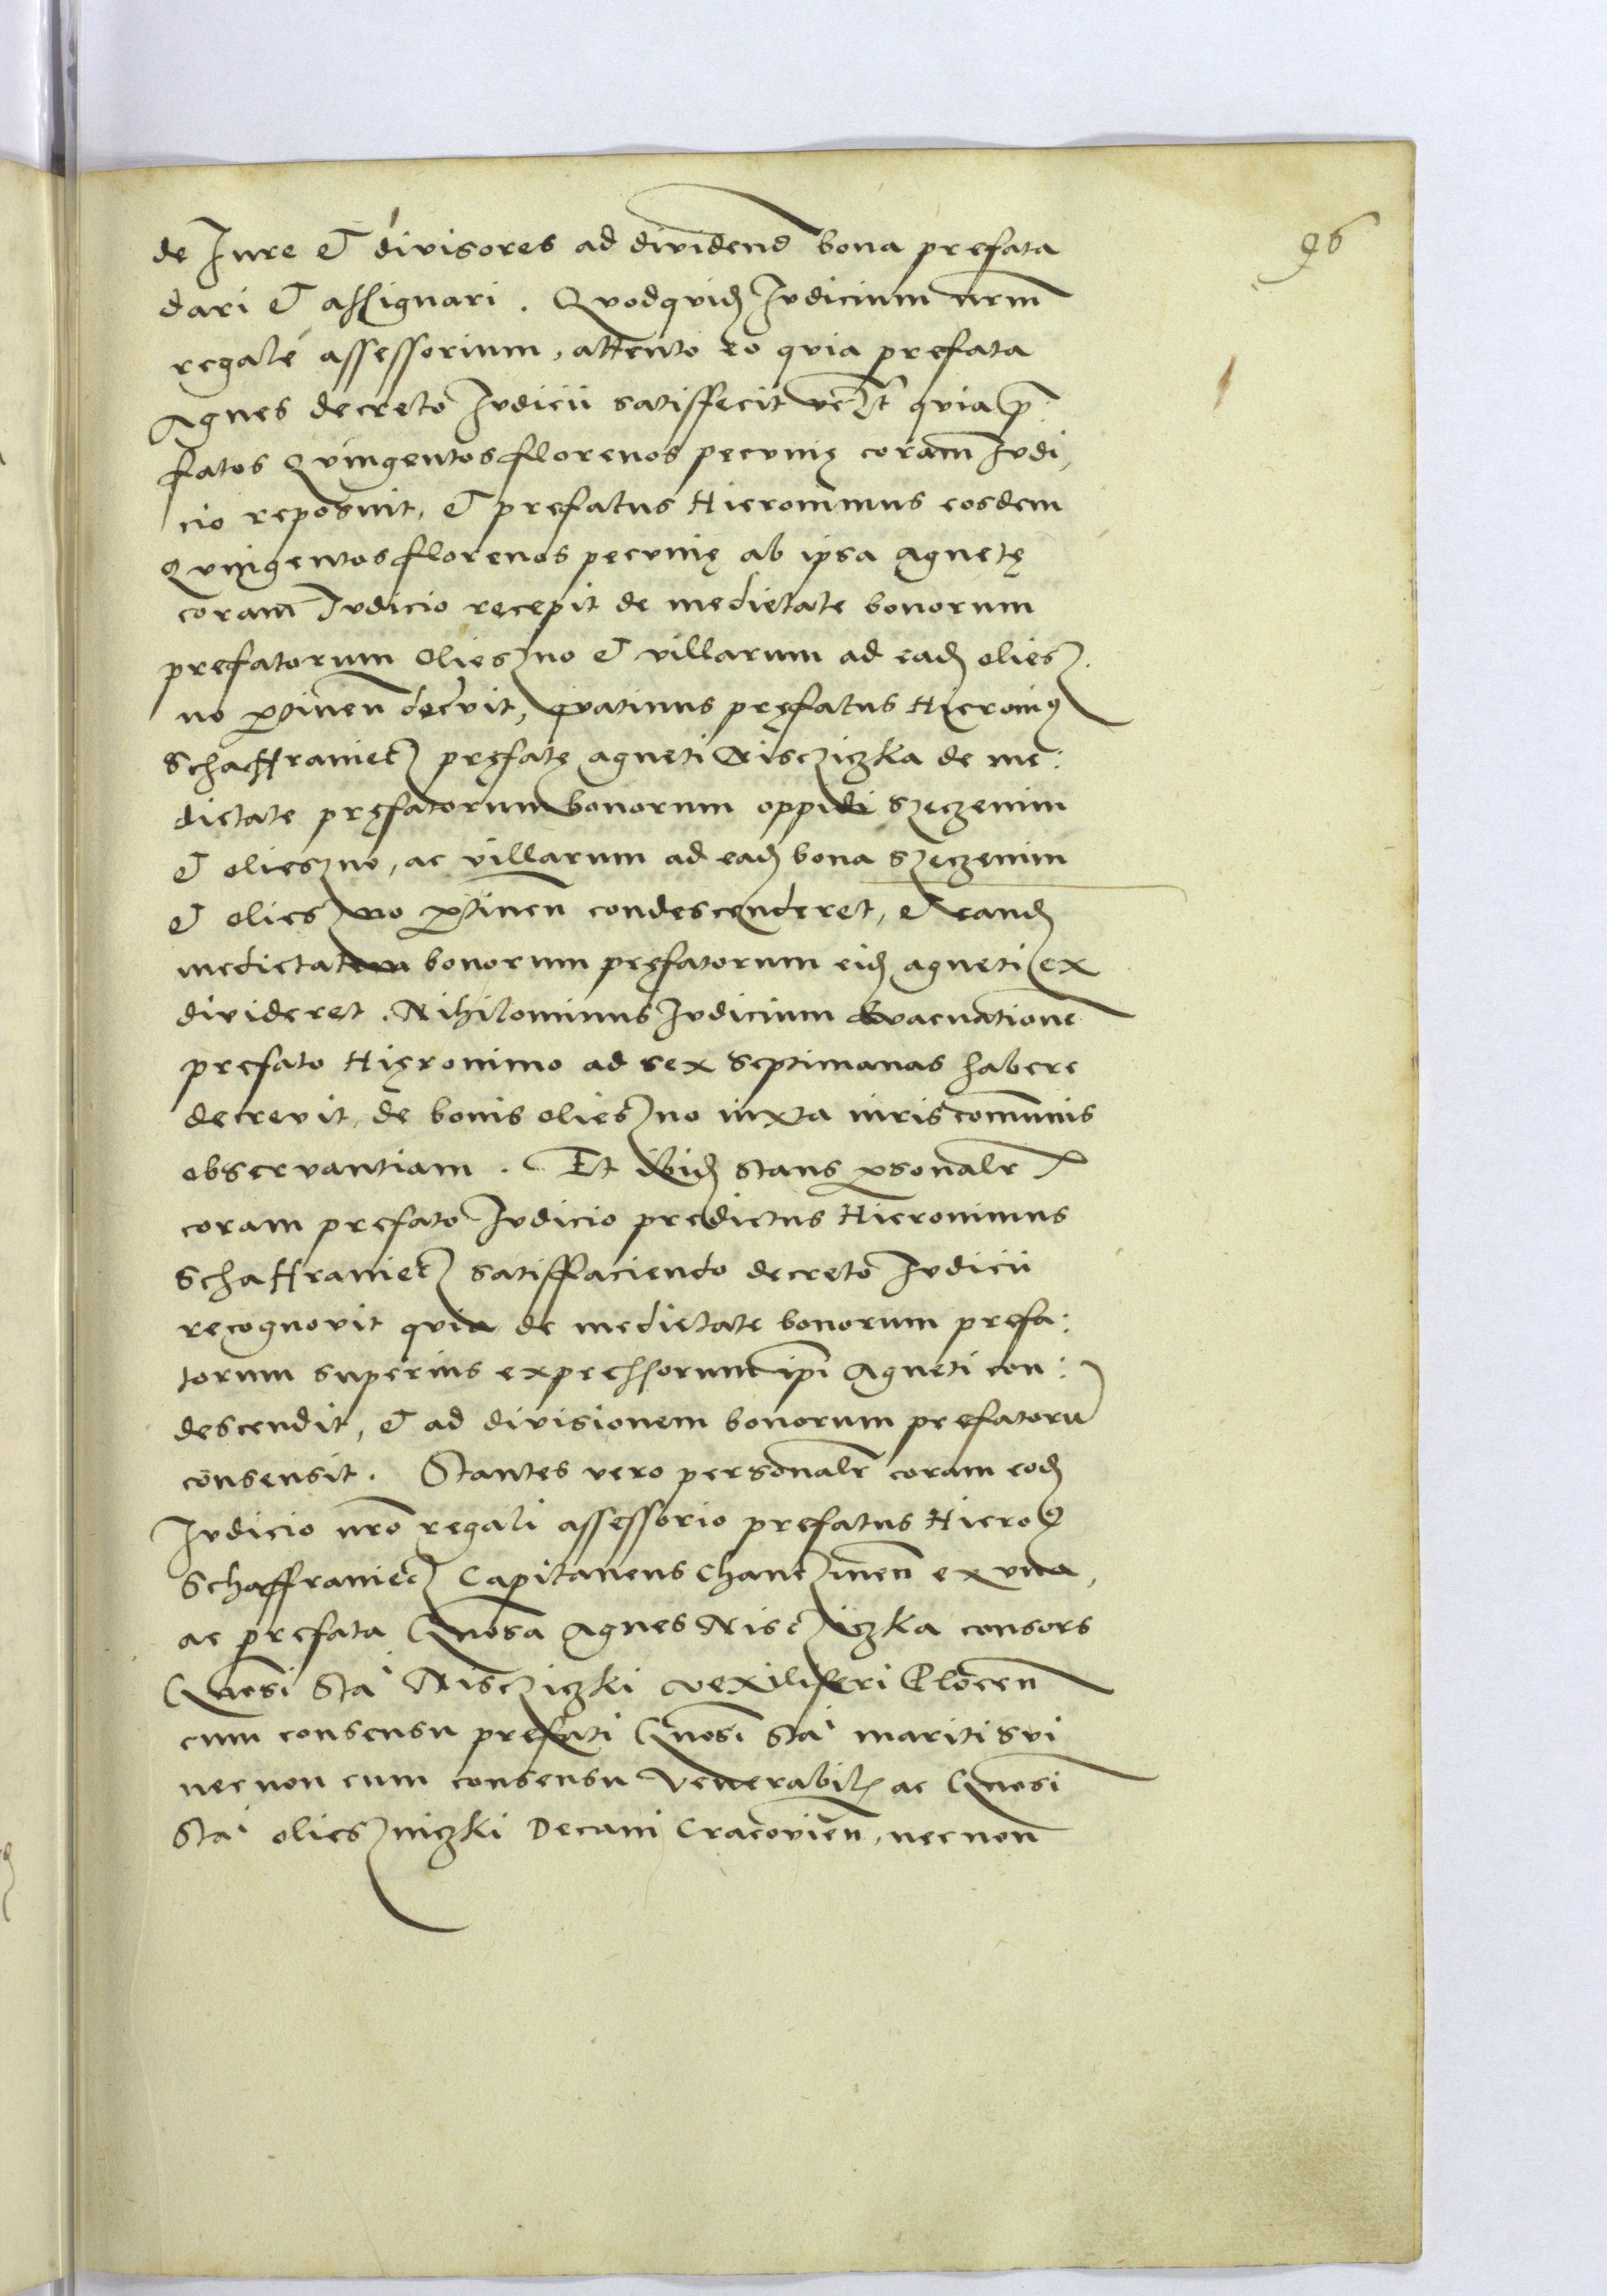 96
de Jure et divisores ad dividend bona prefata
dari et assignari. Quodquid Judicium nrm
regale assessorium, attento eo quia prefata
Agnes decreto Judicii satisfecit quia p̄
fatos quingentos florenos pecunię coram Judi,
cio reposuit, et prefatus Hieronimus eosdem
quingentos florenos pecunię ab ipsa Agnetę
coram Judicio recepit de medietate bonorum
prefatorum Olieszno et villarum ad ead oliesz.
no ptinen̄ decrevit, quatinus pręfatus Hieronim9
Schaffraniecz pręfatę agneti Niscziczka de me:
dietate pręfatorum bonorum oppidi Szeczenim
et oliesz no, ac villarum ad ead bona Szeczenim
et oliesz no ptinen̄ condescenderet, et eand
medietatem bonorum pręfatorum eid agneti ex
divideret. Nihilominus Judicium evacuatione
prefato Hięronimo ad sex septimanas habere
decrevit, de bonis oliesz no iuxta iuris communis
observantiam. Et ibid stans psonalr
coram prefato Judicio predictus Hieronimus
Schaffraniecz satisffaciendo decreto Judicii
recognovit quia de medietate bonorum prefa:
torum superius expressorum ipi Agneti con:
descendit, et ad divisionem bonorum prefatorū
consensit. Stantes vero personalr coram eod
Judicio nro regali assessorio prefatus Hiero9
Schaffraniecz Capitaneus Chanczinen̄ ex una,
ac prefata Gnosa Agnes Niscziczka consors
Gnosi Stai Niscziczki vexiliferi Plocen̄
cum consensu prefati Gnosi Stai mariti sui
nec non cum consensu Venerabil ac Gnosi
Stai oliesz niczki Decani Cracovien̄, nec non